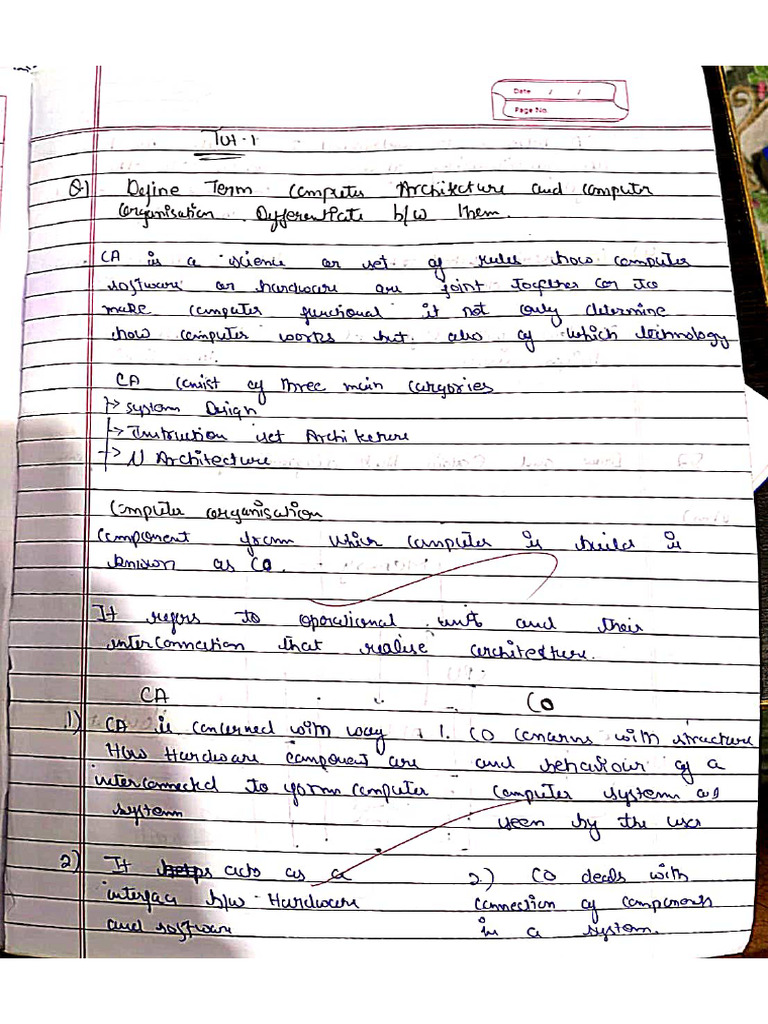 Date / /
Page No.
Tut-1
Q1) Define Term Computer Architecture and Computer
Organisation. Differentiate b/w them.
CA is a science or set of rules how computer
software or hardware are joint together or to
make computer functional it not only determine
how computer works but also of which technology
CA consist of three main categories
→ System Design
→ Instruction set Architecture
→ N Architecture
Computer Organisation
Component from which computer is build is
known as CO.
It refers to operational unit and their
interconnection that realise architecture.
CA CO
1) CA is concerned with way 1. CO concerns with structure
How Hardware component are and behaviour of a
interconnected to form computer computer system as
system seen by the user
2) It helps acts as a 2.) CO deals with
interface b/w Hardware connection of components
and software in a system.